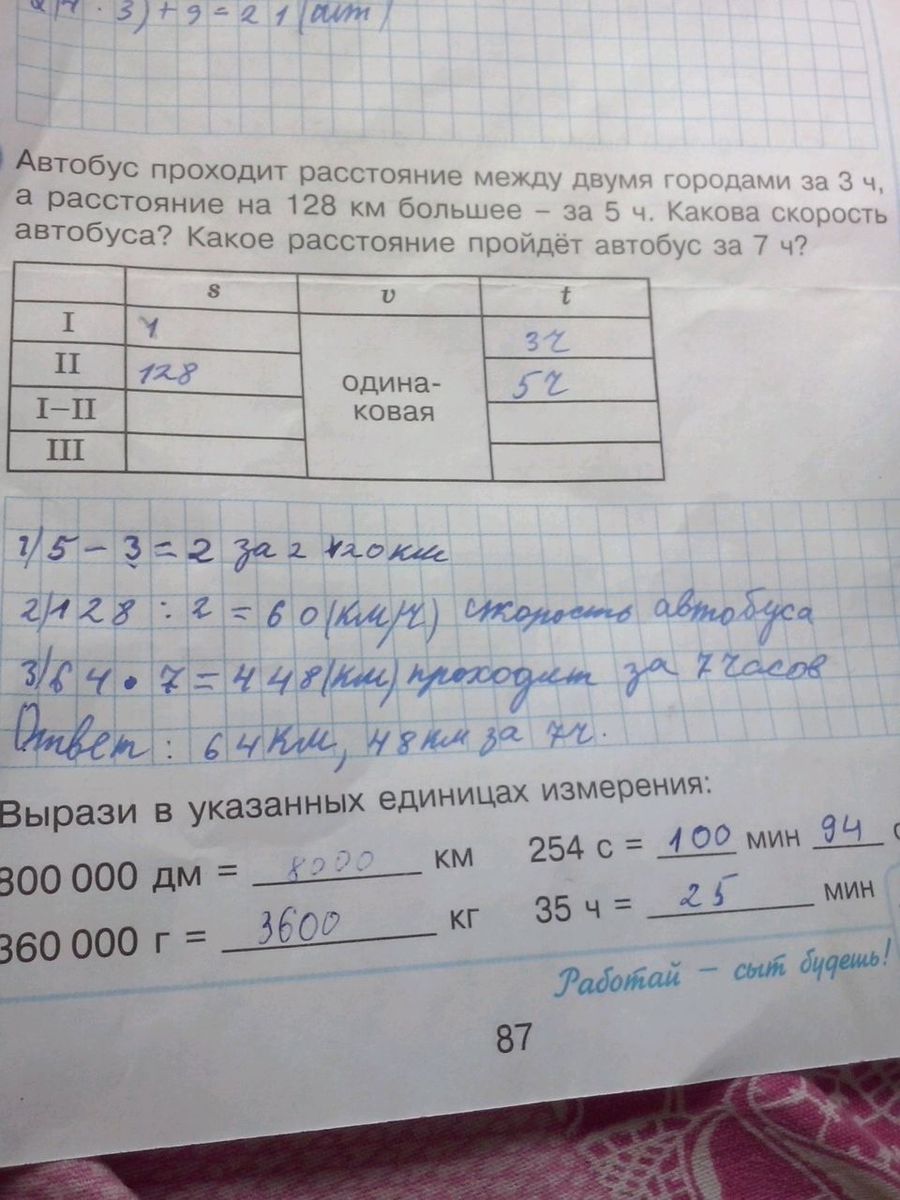 · 3) + 9 = 21 (шт)
Автобус проходит расстояние между двумя городами за 3 ч,
а расстояние на 128 км большее – за 5 ч. Какова скорость
автобуса? Какое расстояние пройдёт автобус за 7 ч?
s v t
I 3ч
II 128 5ч
I–II
III
одина-
ковая
1) 5 – 3 = 2 за 2 120 км
2) 128 : 2 = 60 (км/ч) скорость автобуса
3) 64 · 7 = 448 (км) проходит за 7 часов
Ответ: 64 км, 48 км за 7 ч.
Вырази в указанных единицах измерения:
800 000 дм = 8000 км 254 с = 100 мин 94 с
360 000 г = 3600 кг 35 ч = 25 мин
Работай – сыт будешь!
87